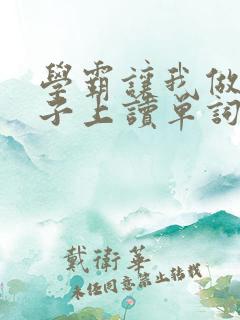 學霸讓我做
子上讀單詞
戴衛華
未經同意禁止轉載